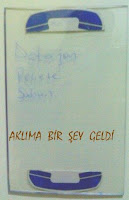 Deterjan
Peçete
Sabun
AKLIMA BİR ŞEY GELDİ